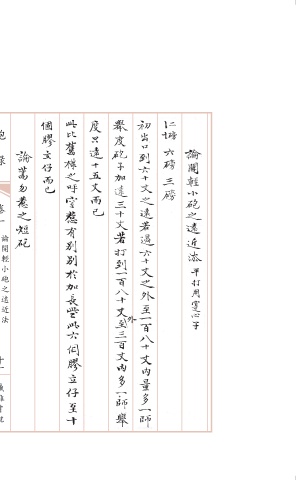 論開輕小砲之遠近法 平打用空心子
仁塘 六磅 三磅
初出口到六十丈之遠若過六十丈之外至一百八十丈內量多一師
舉度砲子加遠三十丈若打到一百八十丈外至三百丈內多一師舉
度只遠十五丈而已
此比舊樣之呼穵想有別別於加長些此六個膠立仔至十
個膠立仔而已
論萬勿惹之短砲
論開輕小砲之遠近法